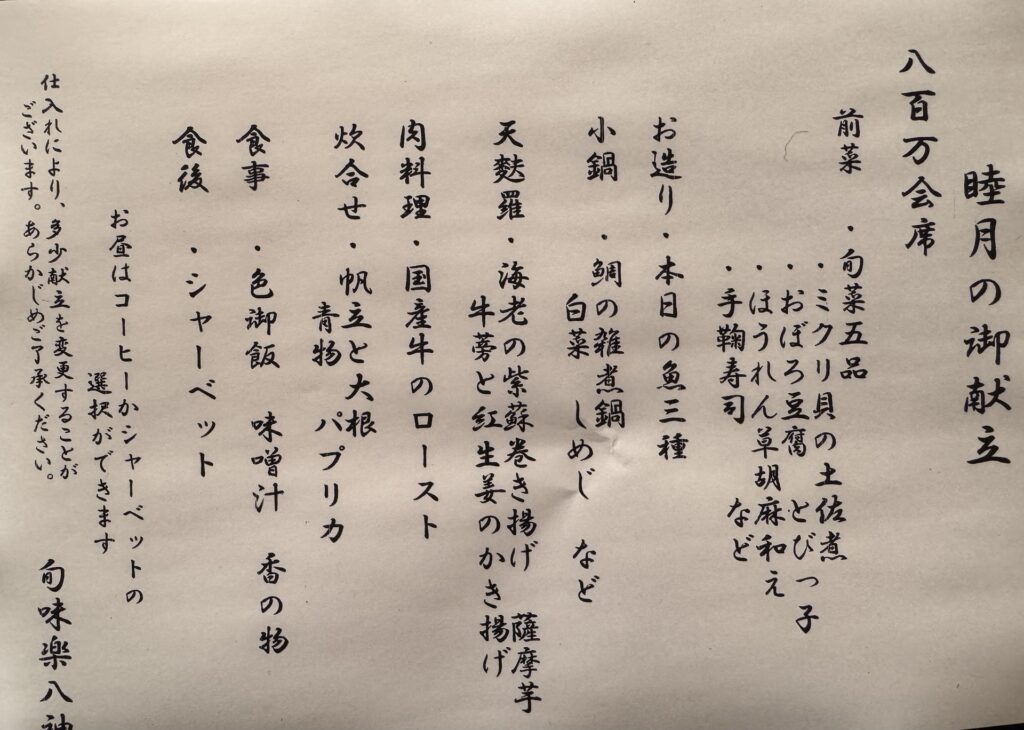 睦月の御献立
八百万会席
前菜 ・旬菜五品
・ミクリ貝の土佐煮
・おぼろ豆腐 とびっ子
・ほうれん草胡麻和え
・手鞠寿司 など
お造り・本日の魚三種
小鍋 ・鯛の雑煮鍋
白菜 しめじ など
天麩羅・海老の紫蘇巻き揚げ 薩摩芋
牛蒡と紅生姜のかき揚げ
肉料理・国産牛のロースト
炊合せ・帆立と大根
青物 パプリカ
食事 ・色御飯 味噌汁 香の物
食後 ・シャーベット
お昼はコーヒーかシャーベットの
選択ができます
仕入れにより、多少献立を変更することが
ございます。あらかじめご了承ください。
旬味楽八神